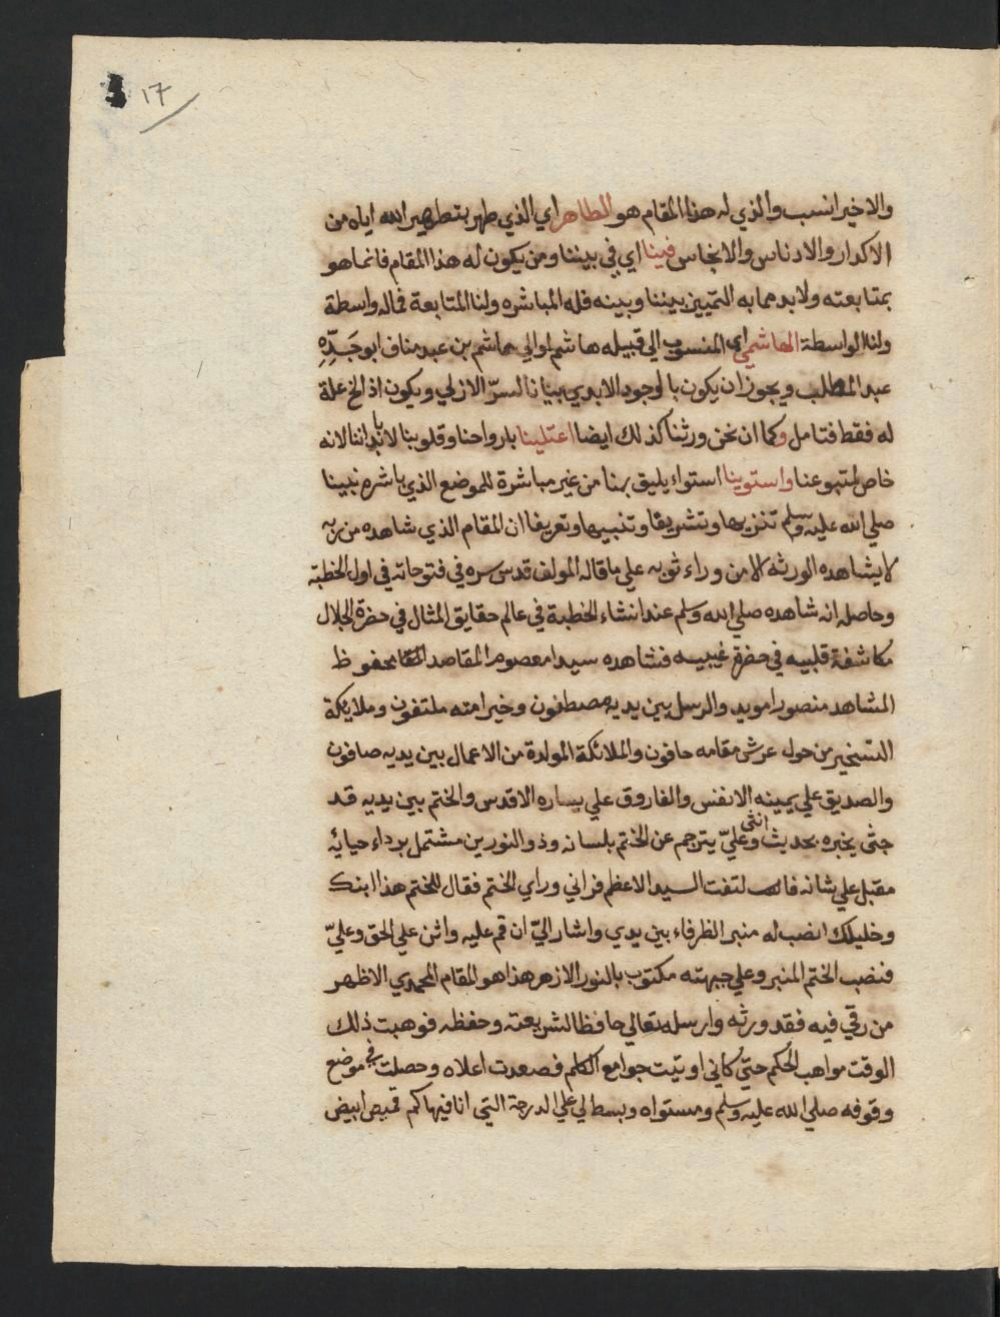 ١٧
والاخير انسب والذي له هذا المقام هو الطاهر اي الذي طهر بتطهير الله اياه من
الاكدار والادناس والانجاس فينا اي في بيننا ومن يكون له هذا المقام فانما هو
بمتابعته ولابد مما به التمييز بيننا وبينه فله المباشره ولنا المتابعة فماله واسطة
ولنا الواسطة الهاشمي اي المنسوب الي قبيله هاشم او الي هاشم بن عبد مناف ابو جَدِّهِ
عبد المطلب ويجوز ان يكون بالوجود الابدي بيانا لسرّ الازلي ويكون اذ الخ علة
له فقط فتامل وكما ان نحن ورثنا كذلك ايضا اعتلينا بارواحنا وقلوبنا لا بابداننا لانه
خاص لمتبوعنا واستوينا استواء يليق بمنا من غير مباشرة للموضع الذي باشره نبينا
صلي الله عليه وسلم تنزيها وتشريفا وتنبيها وتعريفا ان المقام الذي شاهده من ربه
لا يشاهده الورثه الا من وراء ثوبه علي ما قاله المولف قدس سره في فتوحاته في اول الخطبة
وحاصله انه شاهده صلي الله وسلم عند انشاء الخطبة في عالم حقايق المثال في حضرة الجلال
مكاشفة قلبيه في حضرة غيبيه فشاهده سيدا معصوم المقاصد محفوظ
المشاهد منصورا مويد والرسل بين يديه مصطفون وخير امته ملتفون وملايكة
التسخير من حول عرش مقامه حافون والملائكة المولدة من الاعمال بين يديه صافون
والصديق علي يمينه الانفس والفاروق علي يساره الاقدس والختم بين يديه قد
جثى يخبره بحديث انثى وعليّ يترجم عن الختم بلسانه وذو النورين مشتمل برداء حيائه
مقبل علي شانه فالتفت السيد الاعظم فراني وراي الختم فقال للختم هذا ابنك
وخليلك انصب له منبر الظرفاء بين يدي واشار اليّ ان قم عليه واثن علي الحق وعليّ
فنصب الختم المنبر وعلي جبهته مكتوب بالنور الازهر هذا هو المقام المحمدي الاظهر
من رقي فيه فقد ورثه وارسله تعالي حافظا لشريعته وحفظه فوهبت ذلك
الوقت مواهب الحكم حتي كاني اوتيت جوامع الكلم فصعدت اعلاه وحصلت في موضع
وقوفه صلي الله عليه وسلم ومستواه وبسط لي علي الدرجة التي انا فيها كم قميص ابيض